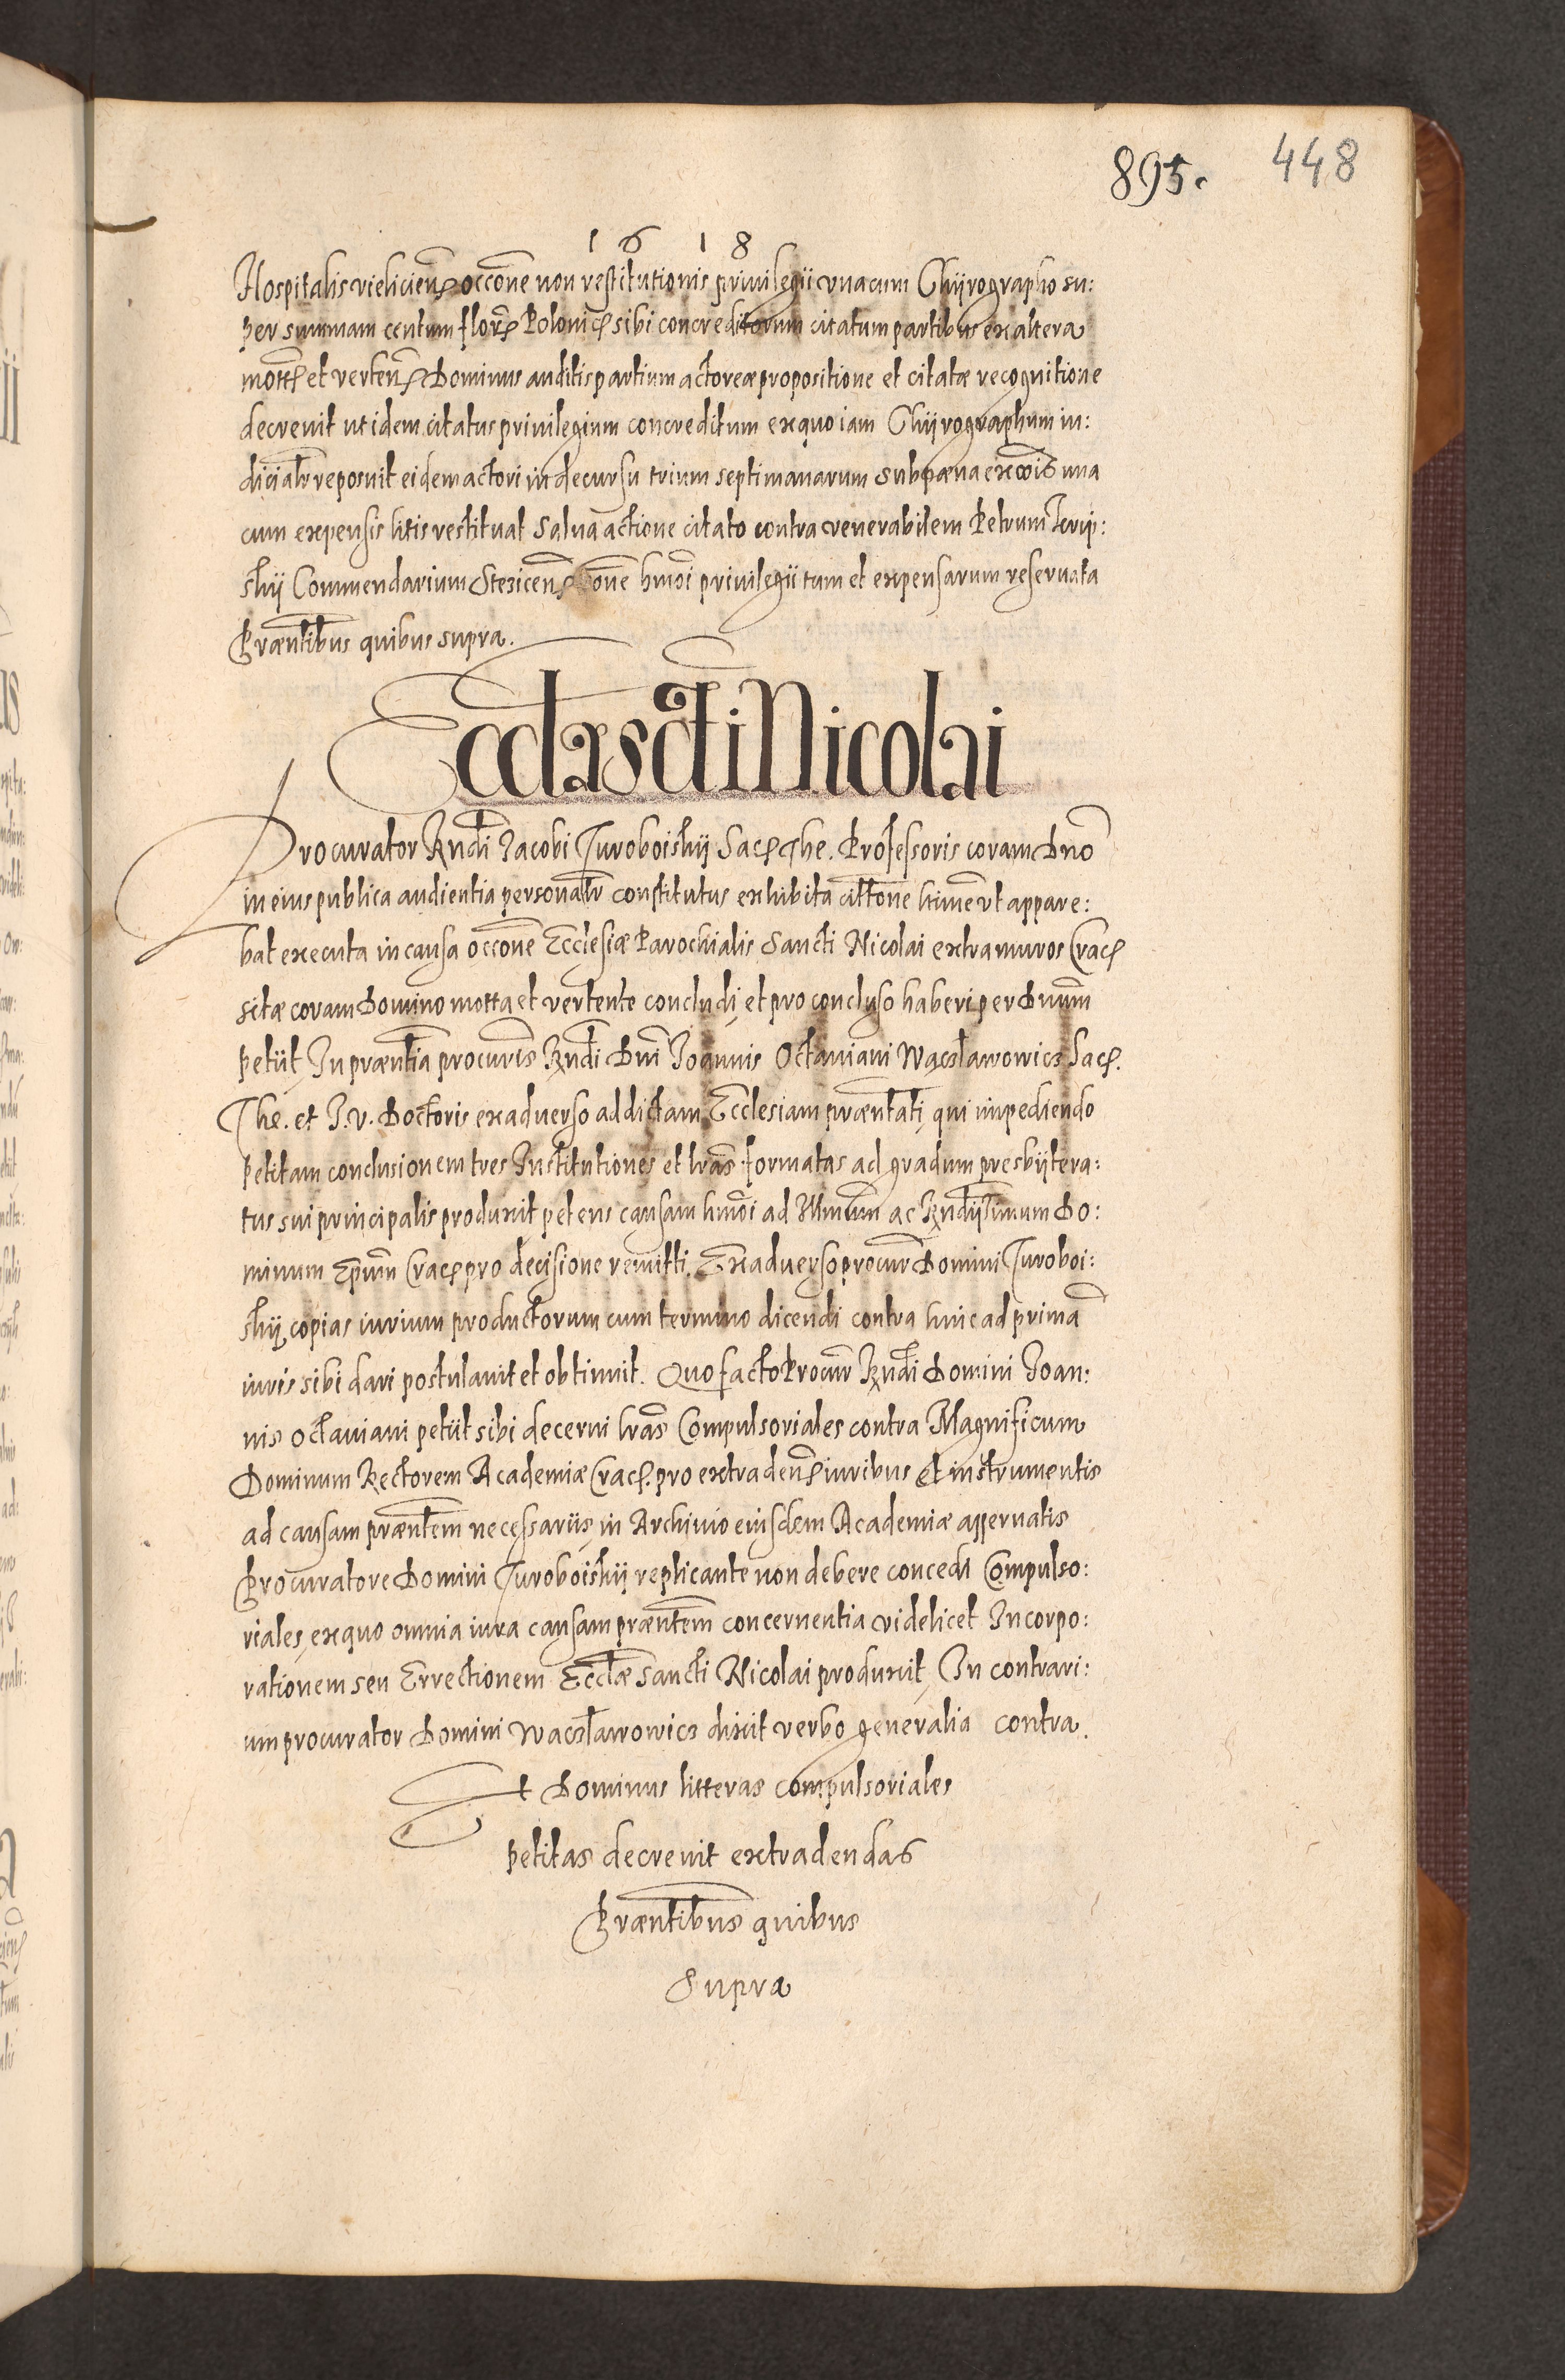 895. 448
1618
Hospitalis vieliciens occōne non restitutionis privilegii vna cum Chyrographo su:
per summam centum flor Polonic sibi concreditorum citatum partibus ex altera
mott et verten Dominus auditis partium actoreæ propositione et citatæ recognitione
decrevit ut idem citatus privilegium concreditum ex quo iam Chyrographum iu:
dicialr reposuit eidem actori in decursu trium septimanarum sub pæna excōis una
cum expensis litis restituat Salua actione citato contra venerabilem Petrum
skij Commendarium hmōi privilegii tum et expensarum reservata
Præntibus quibus supra.
Ecclæ Scti Nicolai
Procurator Rndi Jacobi Turoboiskij Sac The. Professoris coram Dno
in eius publica audientia personalr constitutus exhibita cittone hinc vt appare:
bat executa in causa occōne Ecclesiæ Parochialis Sancti Nicolai extra muros Crac
sitæ coram Domino motta et vertente concludi, et pro concluso haberi per Dnum
petiit, In præntia procuris Rndi Dni Joannis Octaviani Wacslawowics Sac.
The. et J. v. Doctoris ex adverso ad dictam Ecclesiam præntati, qui impediendo
petitam conclusionem tres Institutiones et lras formatas ad gradum presbytera:
tus sui principalis produxit petens causam hmōi ad Illmum ac Rndissimum Do:
minum Epum Crac pro decisione remitti. Ex adverso procur Domini Turoboi:
skij, copias iurium productorum cum termino dicendi contra hinc ad primā
iuris sibi dari postulavit et obtinuit. Quo facto Procur Rndi Domini Joan:
nis Octaviani petiit sibi decerni lras Compulsoriales contra Magnificum
Dominum Rectorem Academiæ Crac. pro extraden iuribus et instrumentis
ad causam præntem necessariis, in Archivio eiusdem Academiæ asservatis
Procuratore Domini Turoboiskij replicante non debere concedi Compulso:
riales, ex quo omnia iura causam præntem concernentia videlicet Incorpo:
rationem seu Errectionem Ecclæ Sancti Nicolai produxit, In contrari:
um procurator Domini Wacslawowics dixit verbo generalia contra.
Et Dominus litteras compulsoriales
petitas decrevit extradendas
Præntibus quibus
Supra